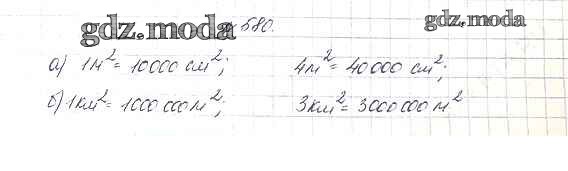 gdz.moda 580. gdz.moda
а) 1м²= 10000 см²; 4м²= 40000 см²;
б) 1км²= 1000 000м²; 3км²= 3000 000 м²